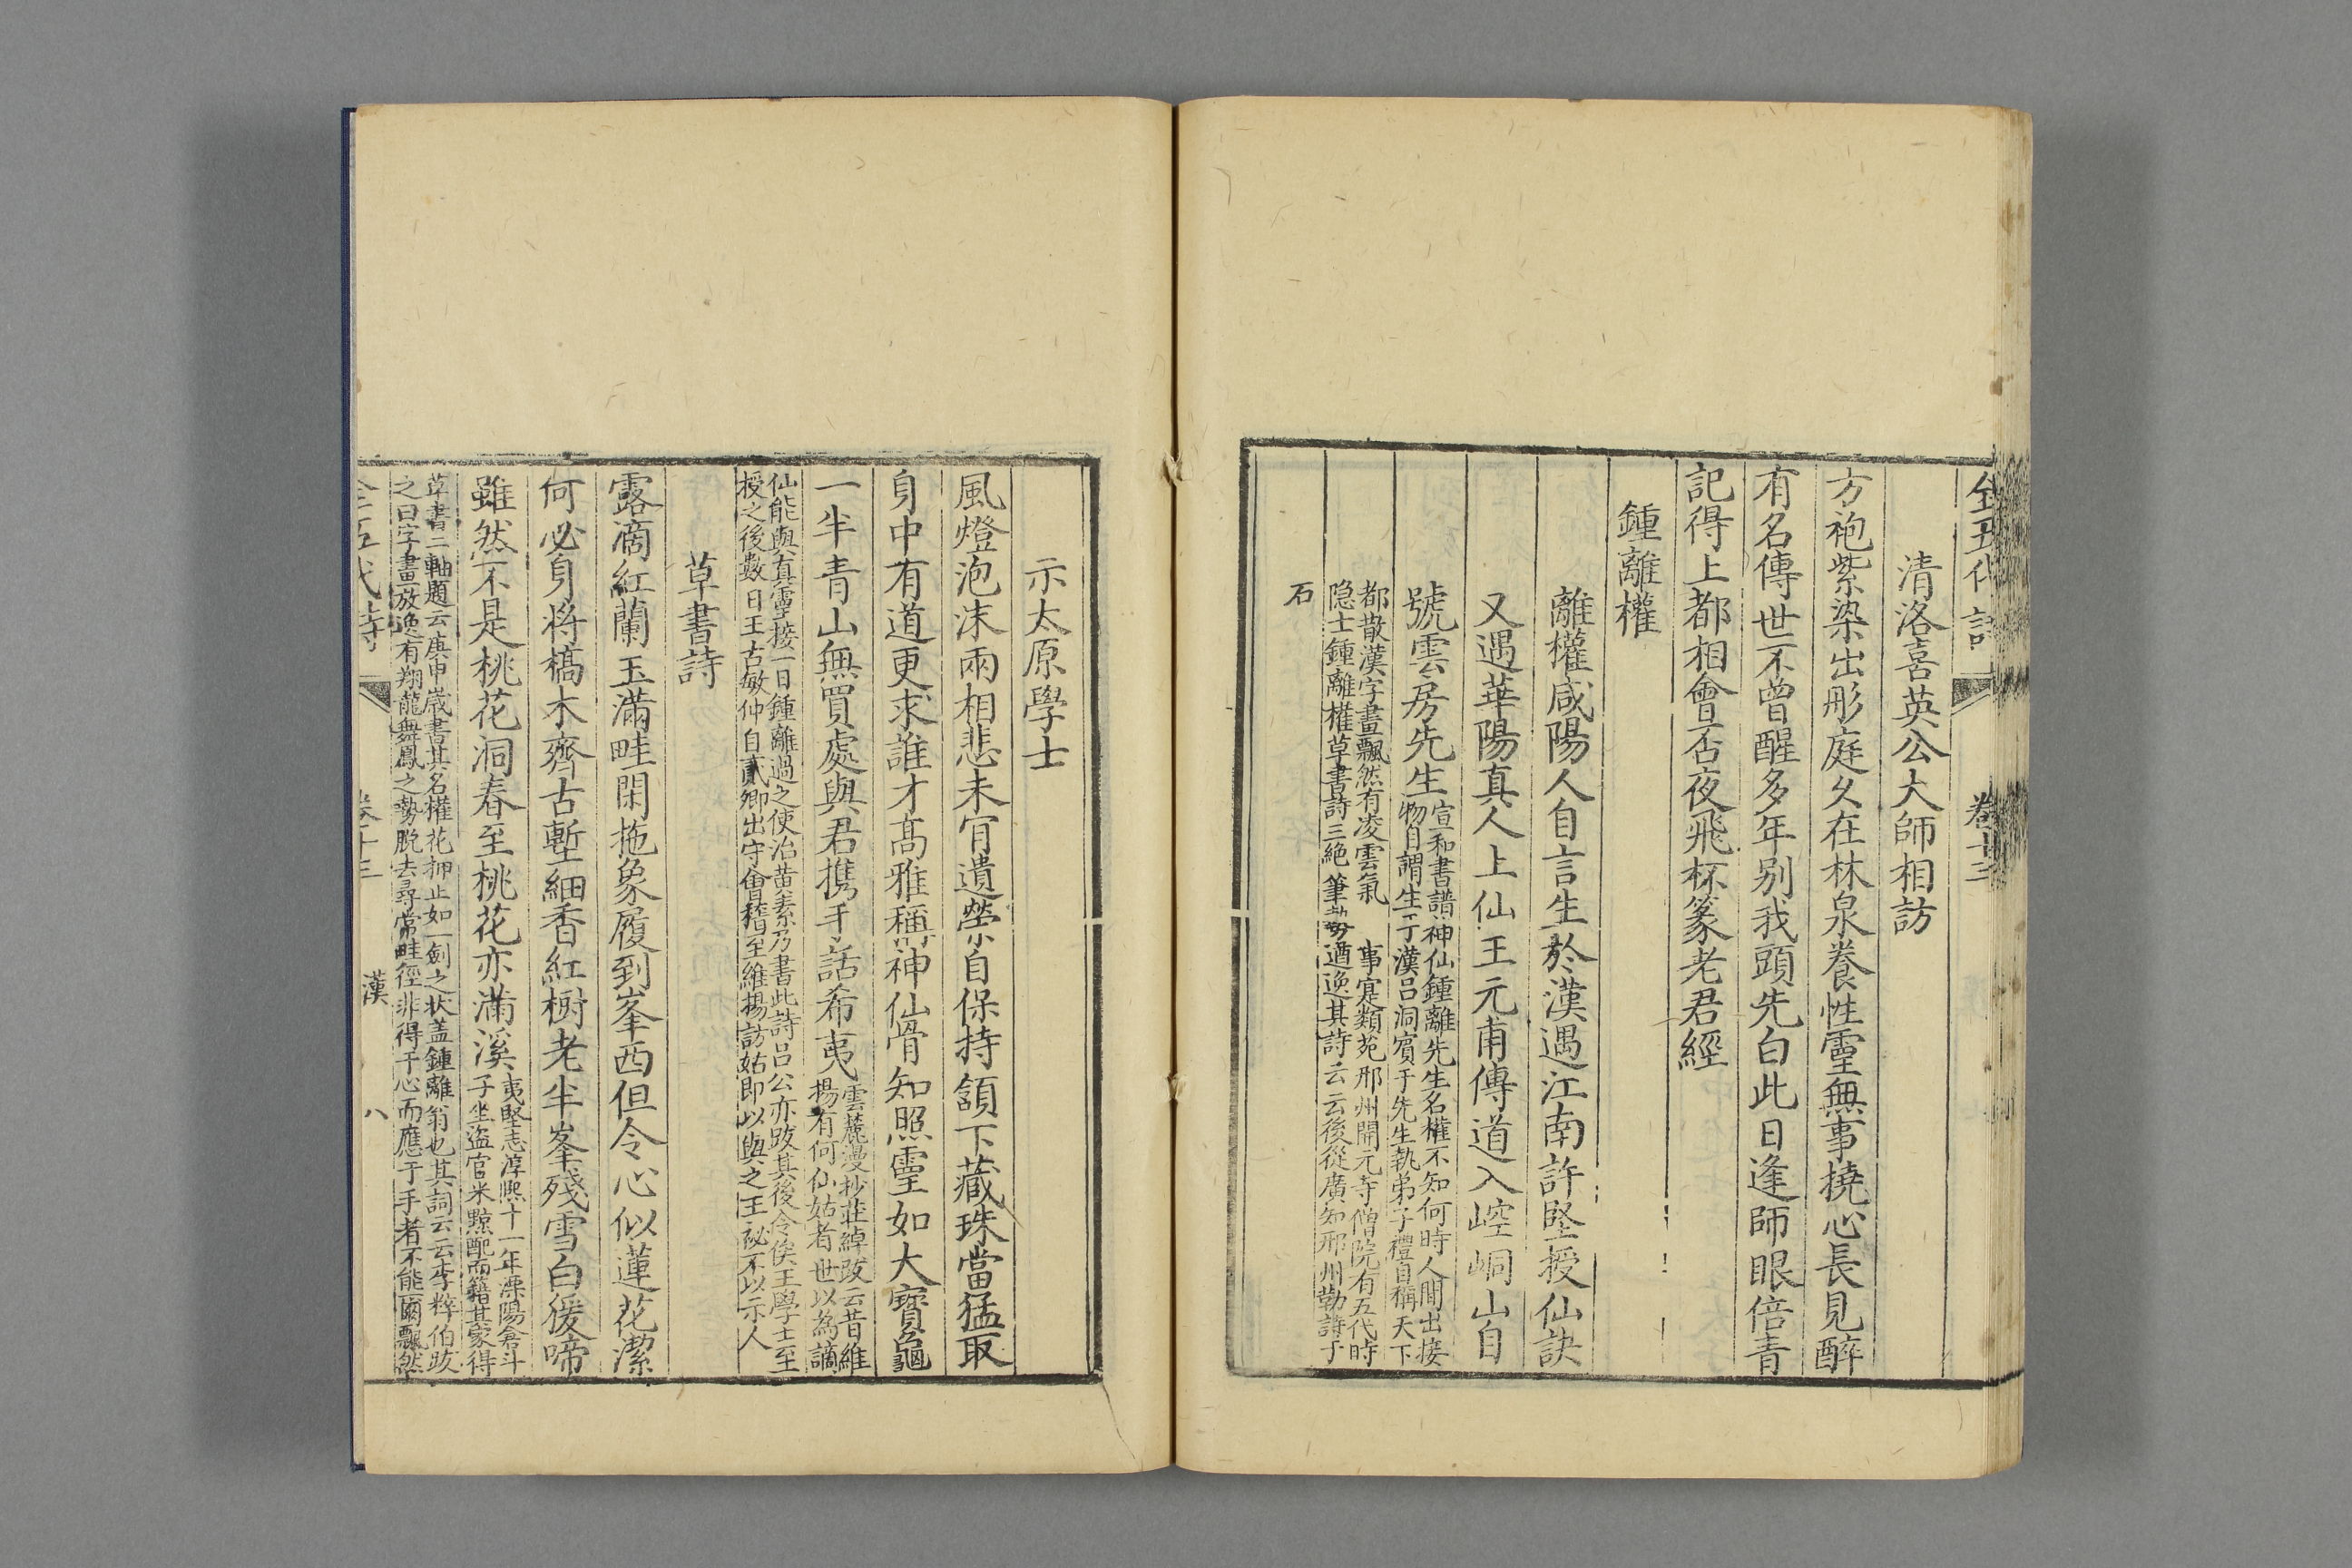 全五代詩 卷十三
清洛喜英公大師相訪
方袍紫染出彤庭久在林泉養性靈無事撓心長見醉
有名傳世不曾醒多年别我頭先白此日逢師眼倍青
記得上都相會否夜飛杯篆老君經
鍾離權
離權咸陽人自言生於漢遇江南許堅授仙訣
又遇華陽真人上仙王元甫傳道入崆峒山自
號雲房先生
宣和書譜神仙鍾離先生名權不知何時人間出接
物自謂生于漢呂洞賓于先生執弟子禮自稱天下
都散漢字畫飄然有凌雲氣 事寔類苑邢州開元寺僧院有五代時
隐士鍾離權草書詩三絶筆勢遒逸其詩云云後從廣知邢州勒詩于
石
示太原學士
風燈泡沫兩相悲未肎遺榮自保持頷下藏珠當猛取
身中有道更求誰才高雅稱神仙骨知照靈如大寳龜
一半青山無買處與君携手話希夷
雲麓漫抄莊綽跋云昔維
揚有何仙姑者世以為謫
仙能與真靈接一日鍾離過之使治黄素乃書此詩呂公亦跋其後令俟王學士至
授之後數日王古敏仲自貳卿出守會稽至維揚訪姑即以與之王祕不以示人
草書詩
露滴紅蘭玉滿畦閑拖象履到峯西但令心似蓮花潔
何必身將槁木齊古塹細香紅樹老半峯殘雪白猨啼
雖然不是桃花洞春至桃花亦滿溪
夷堅志淳熙十一年溧陽倉斗
子坐盗官米黥配而籍其家得
草書二軸題云庚申歲書其名權花押止如一劍之状盖鍾離翁也其詞云云李粹伯跋
之曰字畫放逸有翔龍舞鳳之勢脱去尋常畦徑非得于心而應于手者不能爾飄然
全五代詩 卷十三 漢 八